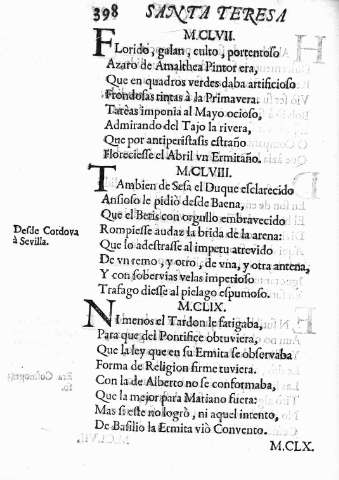 398 SANTA TERESA
M.CLVII.
Florido, galan, culto, portentoso
Azaro de Amalthea Pintor era,
Que en quadros verdes daba artificioso
Frondosas tintas à la Primavera.
Tarèas imponia al Mayo ocioso,
Admirando del Tajo la rivera,
Que por antiperistasis estraño
Floreciesse el Abril vn Ermitaño.
M.CLVIII.
Tambien de Sesa el Duque esclarecido
Ansioso le pidiò desde Baena,
Que el Betis con orgullo embravecido
Desde Cordova
à Sevilla.
Rompiesse audaz la brida de la arena:
Que lo adestrasse al impetu atrevido
De vn remo, y otro, de vna, y otra antena,
Y con sobervias velas imperioso
Trafago diesse al pielago espumoso.
M.CLIX.
Ni menos el Tardon le fatigaba,
Para que del Pontifice obtuviera,
Que la ley que en su Ermita se observaba
Forma de Religion firme tuviera.
Con la de Alberto no se conformaba,
Que la mejor para Mariano fuera:
Mas si este no logrò, ni aquel intento,
De Basilio la Ermita viò Convento.
M.CLX.